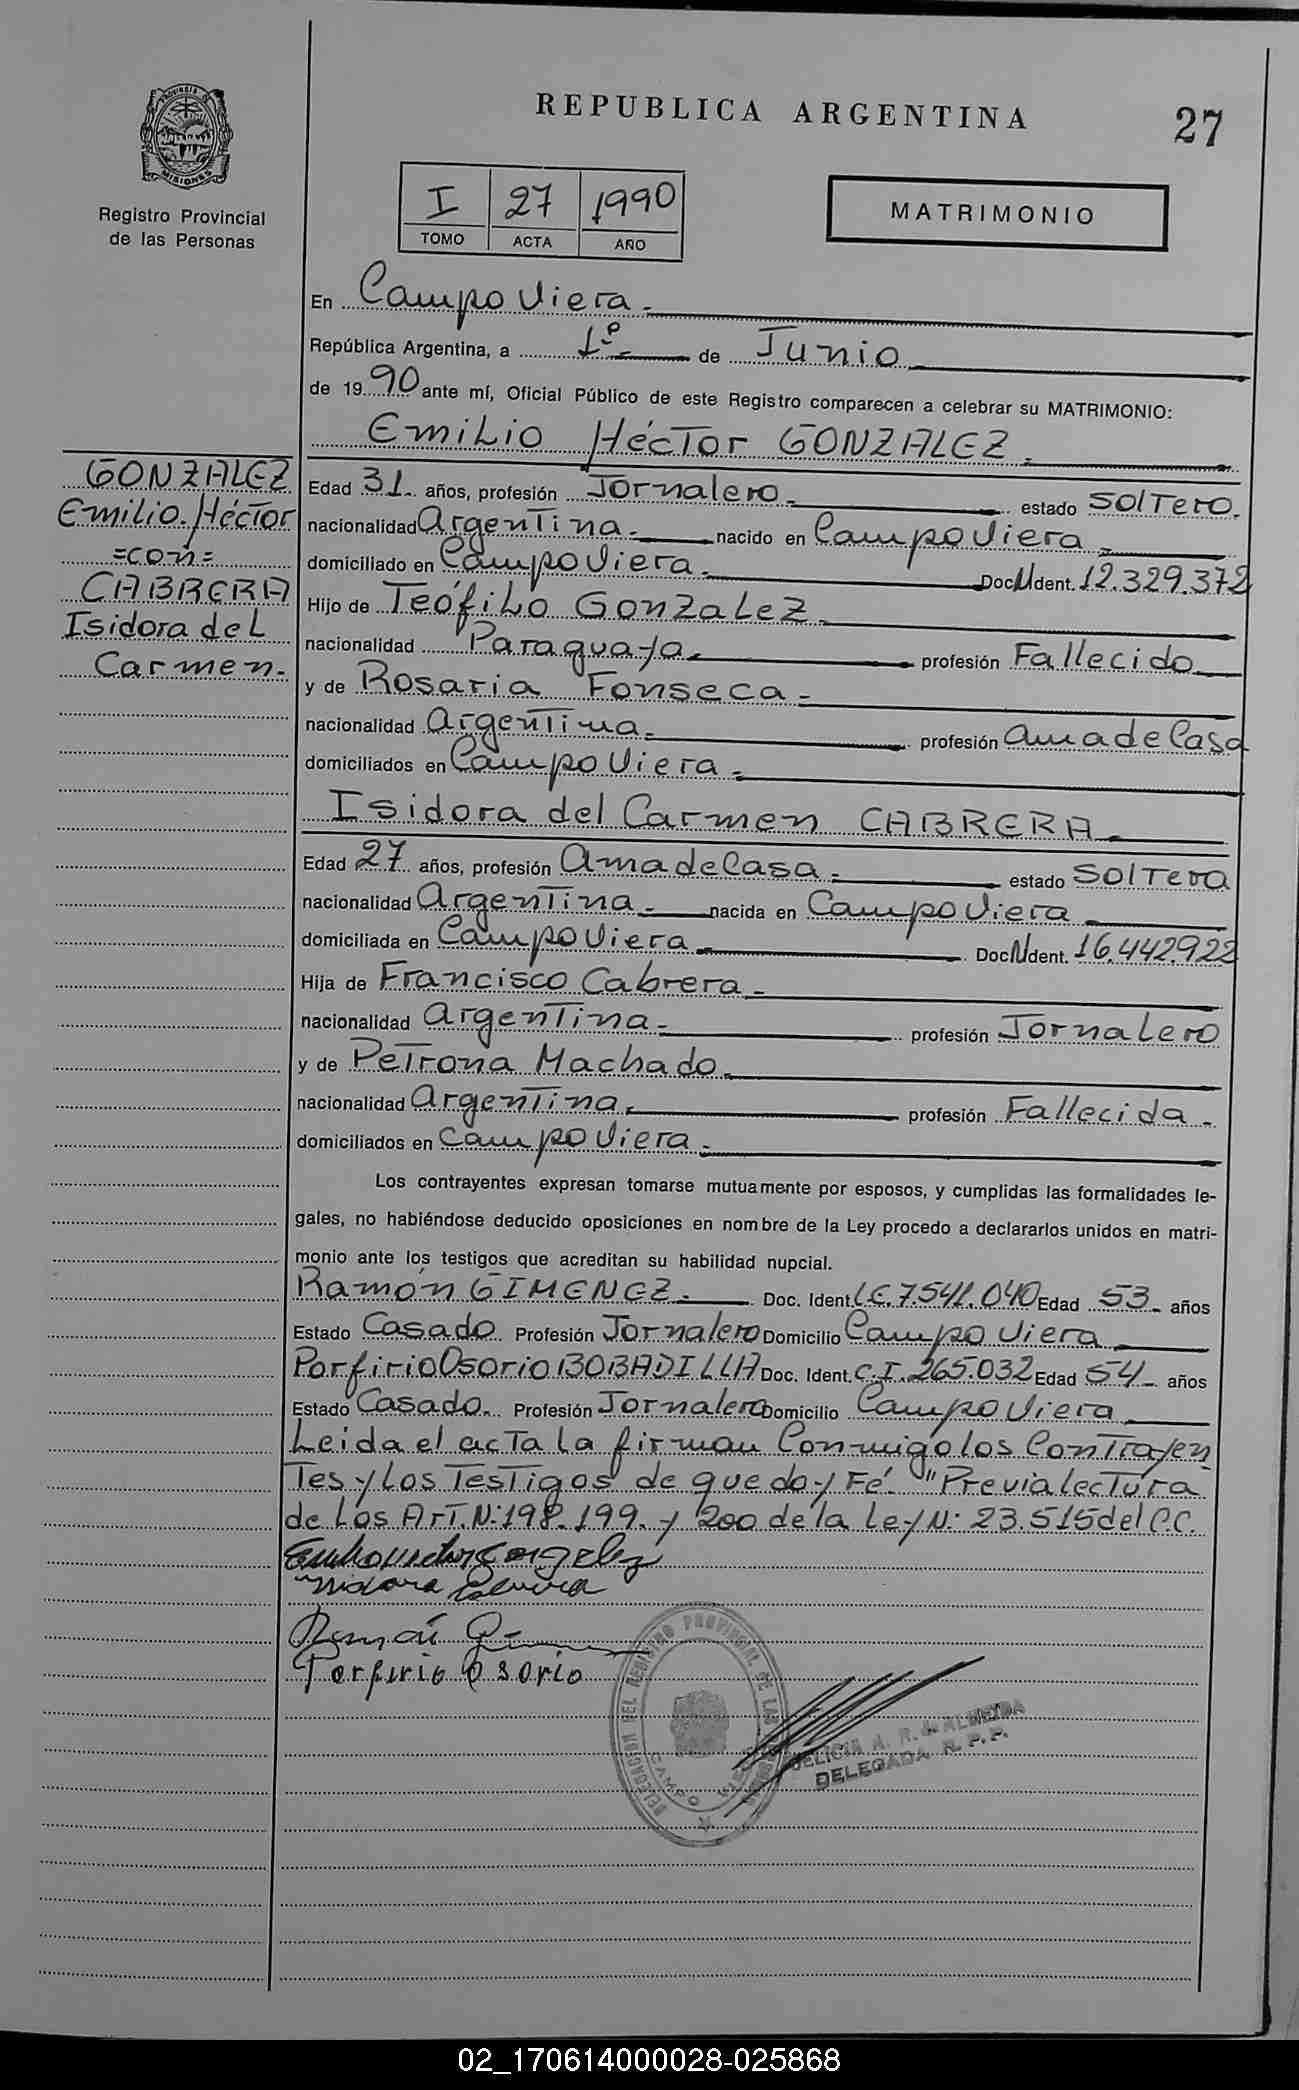 REPUBLICA ARGENTINA
27
PROVINCIA DE
MISIONES
Registro Provincial
de las Personas
I 27 1990
TOMO ACTA AÑO
MATRIMONIO
En Campo Viera.-
República Argentina, a 1º de Junio
de 1990 ante mí, Oficial Público de este Registro comparecen a celebrar su MATRIMONIO:
Emilio Héctor GONZALEZ.
GONZALEZ
Emilio Héctor
=con=
CABRERA
Isidora del
Carmen.-
Edad 31 años, profesión Jornalero.- estado Soltero.
nacionalidad Argentina.- nacido en Campo Viera
domiciliado en Campo Viera.- Doc N Ident. 12.329.372
Hijo de Teófilo Gonzalez.
nacionalidad Paraguaya.- profesión Fallecido
y de Rosaria Fonseca.-
nacionalidad Argentina.- profesión ama de Casa
domiciliados en Campo Viera.-
Isidora del Carmen CABRERA.-
Edad 27 años, profesión Ama de Casa.- estado Soltera
nacionalidad Argentina.- nacida en Campo Viera
domiciliada en Campo Viera.- Doc N Ident. 16.442.922
Hija de Francisco Cabrera.-
nacionalidad Argentina.- profesión Jornalero
y de Petrona Machado.
nacionalidad Argentina. profesión Fallecida.-
domiciliados en Campo Viera.-
Los contrayentes expresan tomarse mutuamente por esposos, y cumplidas las formalidades le-
gales, no habiéndose deducido oposiciones en nombre de la Ley procedo a declararlos unidos en matri-
monio ante los testigos que acreditan su habilidad nupcial.
Ramón GIMENEZ.- Doc. Ident. L.E. 7.541.040 Edad 53 años
Estado Casado Profesión Jornalero Domicilio Campo Viera
Porfirio Osorio BOBADILLA Doc. Ident. C.I. 265.032 Edad 54 años
Estado Casado. Profesión Jornalero Domicilio Campo Viera
Leida el acta la firman Conmigo los Contrayen
tes y los Testigos de que doy Fé. "Previa lectura
de Los Art. N: 198. 199. y 200 de la Ley N: 23.515 del C.C.
Isidora Cabrera
Ramón
Porfirio Osorio
DELEGACION DEL REGISTRO PROVINCIAL DE LAS
CAMPO VIERA
A. R. de ALMEIDA
DELEGADA R. P. P.
02_170614000028-025868